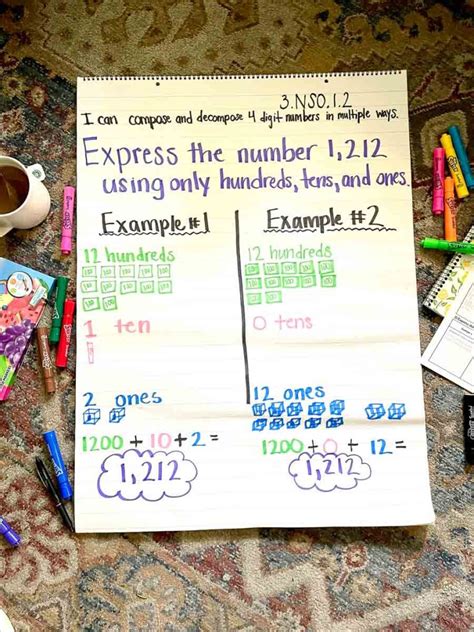 3.NSO.1.2
I can compose and decompose 4 digit numbers in multiple ways.
Express the number 1,212
using only hundreds, tens, and ones.
Example #1
12 hundreds
100 100 100 100 100
100 100 100 100 100
100 100
1 ten
2 ones
1200 + 10 + 2 =
1,212
Example #2
12 hundreds
0 tens
12 ones
1200 + 0 + 12 =
1,212